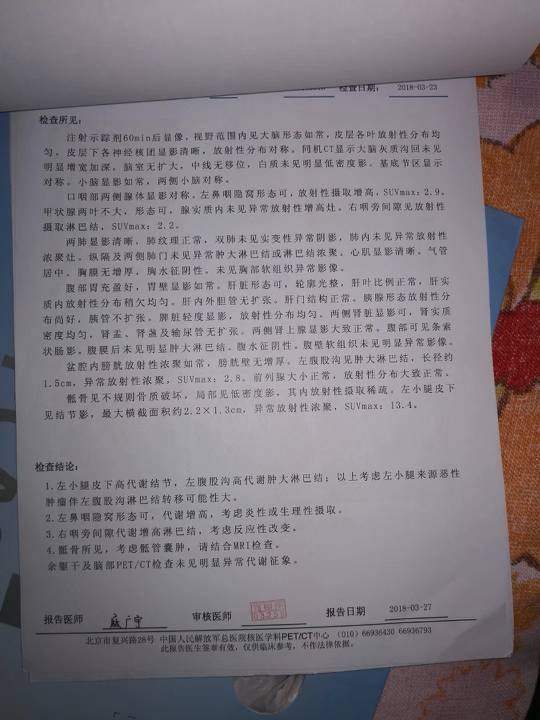 检查日期： 2018-03-23
检查所见：
注射示踪剂60min后显像，视野范围内见大脑形态如常，皮层各叶放射性分布均
匀。皮层下各神经核团显影清晰，放射性分布对称。同机CT显示大脑灰质沟回未见
明显增宽加深，脑室无扩大，中线无移位，白质未见明显低密度影。基底节区显示
对称。小脑显影如常，两侧小脑对称。
口咽部两侧腺体显影对称。左鼻咽隐窝形态可，放射性摄取增高，SUVmax：2.9。
甲状腺两叶不大，形态可，腺实质内未见异常放射性增高灶。右咽旁间隙见放射性
摄取淋巴结，SUVmax：2.2。
两肺显影清晰，肺纹理正常，双肺未见实变性异常阴影，肺内未见异常放射性
浓聚灶。纵隔及两侧肺门未见异常肿大淋巴结或淋巴结浓聚。心肌显影清晰。气管
居中。胸膜无增厚，胸水征阴性。未见胸部软组织异常影像。
腹部胃充盈好，胃壁显影如常。肝脏形态可，轮廓完整，肝叶比例正常，肝实
质内放射性分布稍欠均匀。肝内外胆管无扩张。肝门结构正常。胰腺形态放射性分
布尚好，胰管不扩张。脾脏轻度显影，放射性分布均匀。两侧肾脏显影可，肾实质
密度均匀，肾盂、肾盏及输尿管无扩张。两侧肾上腺显影大致正常。腹部可见条索
状肠影。腹膜后未见明显肿大淋巴结。腹水征阴性。腹壁软组织未见明显异常影像。
盆腔内膀胱放射性浓聚如常，膀胱壁无增厚。左腹股沟见肿大淋巴结，长径约
1.5cm，异常放射性浓聚，SUVmax：2.8。前列腺大小正常，放射性分布大致正常。
骶骨见不规则骨质破坏，局部见低密度影，其内放射性摄取稀疏。左小腿皮下
见结节影，最大横截面积约2.2×1.3cm，异常放射性浓聚，SUVmax：13.4。
检查结论：
1.左小腿皮下高代谢结节，左腹股沟高代谢肿大淋巴结；以上考虑左小腿来源恶性
肿瘤伴左腹股沟淋巴结转移可能性大。
2.左鼻咽隐窝形态可，代谢增高，考虑炎性或生理性摄取。
3.右咽旁间隙代谢增高淋巴结，考虑反应性改变。
4.骶骨所见，考虑骶管囊肿，请结合MRI检查。
余躯干及脑部PET/CT检查未见明显异常代谢征象。
报告医师 审核医师 报告日期 2018-03-27
北京市复兴路28号 中国人民解放军总医院核医学科PET/CT中心 （010）66936430 66936793
此报告医生签章有效，仅供临床参考，不作法律依据。